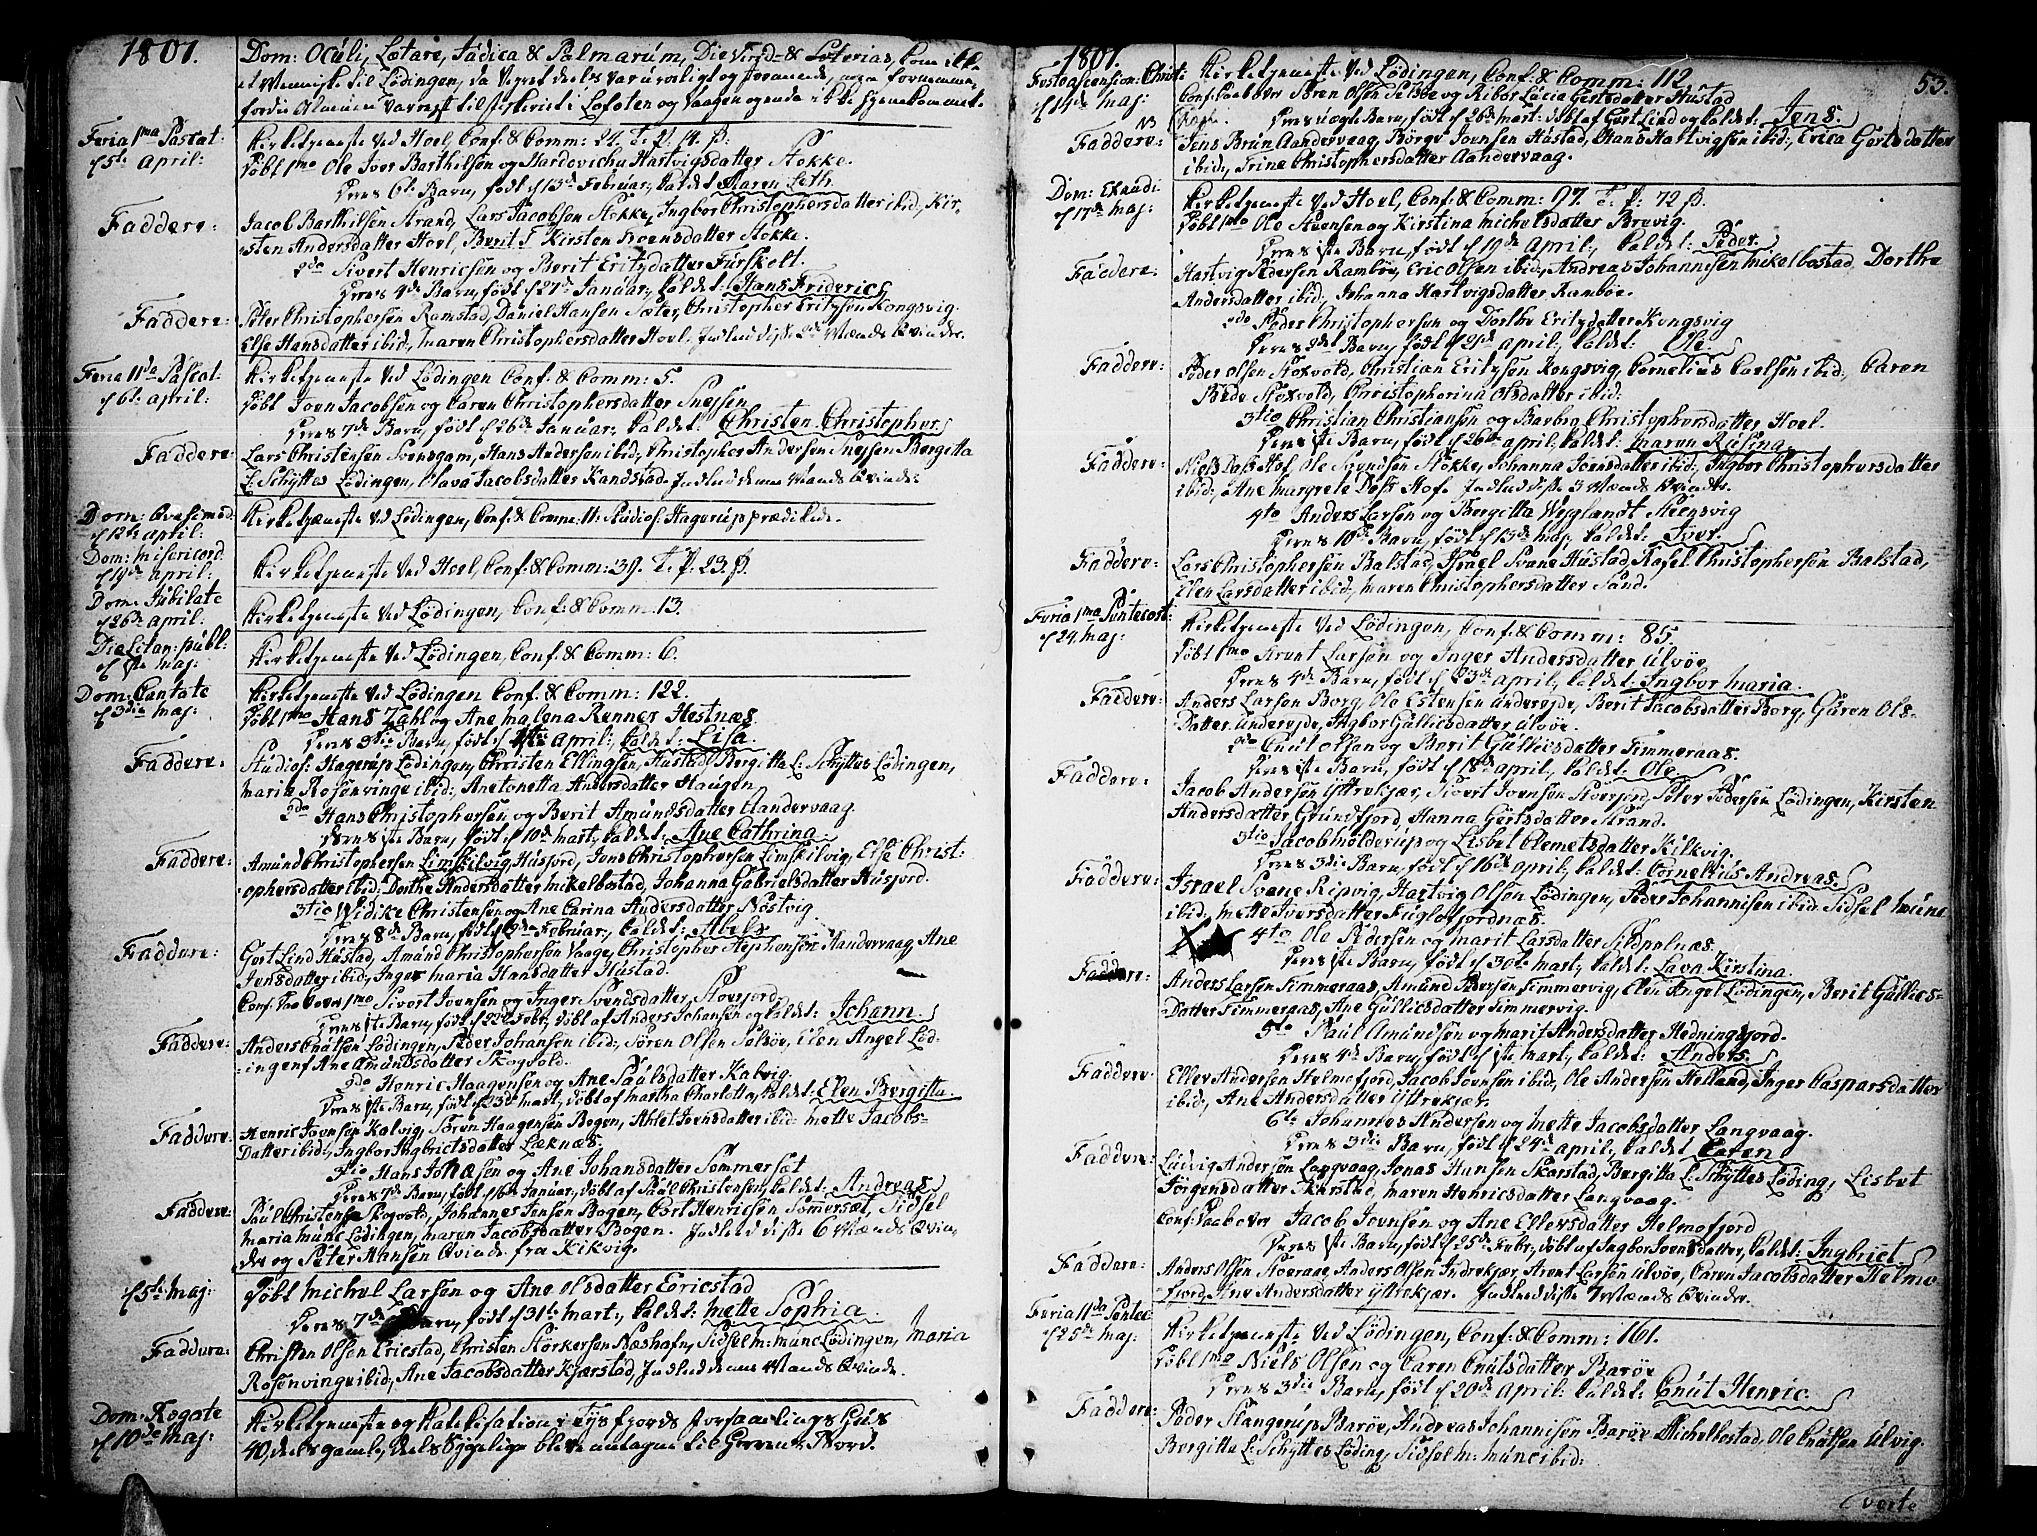 1801.
Dom: Oculi, Lætare, Judica & Palmarum, Die Virid: & Soterias, kom ikke
et Menniske til Lødingen, da Veyret deels var uroeligt og
fordi Almuen var reyst til fiskeriet i Lofoten og Vaagen og endnu ikke hjemkommet.
Feria 1ma Pascat:
d 5te April:
Kirketjeneste ved Hoel, Conf: & Comm: 24. T: P: 4 β.
Døbt 1mo Ole Iver Barthelsen og Hartvigsdatter Stokke.
Deres 6te Barn, født d 13de Februar, kaldet Maren Leth
Faddere:
Jacob Barthelsen Strand, Lars Jacobsen Stokke, Ingbor Christophersdatter ibid, Kir-
sten Andersdatter Hoel, Berit T. Kirsten Hoensdatter Stokke.
2do Sivert Henricsen og Berit Eritzdatter Furskelt.
Deres 4de Barn, født d 27de Januar, kaldet: Hans Frideric
Faddere:
Peter Christophersen Ramstad, Daniel Hansen Sæter, Christopher Eritzsen Kongsvig.
Else Hansdatter ibid, Maren Christophersdatter Hoel. Indled disse 2de Mænds Qvinder.
Feria 11da Pascat:
d 6te April:
Kirketjeneste ved Lødingen Conf: & Comm: 5.
Døbt Joen Jacobsen og Caren Christophersdatter Snessen
Deres 7de Barn, født d 26de Januar, kaldet: Christen Christopher
Faddere:
Lars Christensen Svensgam, Hans Andersen ibid, Christopher Andersen Snessen Bergitta
L: Schyttes Lødingen, Olava Jacobsdatter Kandstad. Indled denne Mands Qvinde.
Dom: Qvasimod:
d 12te April:
Kirketjeneste ved Lødingen, Conf: & Comm: 11. Studios: Hagerup prædikede.
Dom: Misericord
d 19de April:
Kirketjeneste ved Hoel, Conf: & Comm: 39. T: P: 23 β.
Dom: Jubilate
d 26de April:
Kirketjeneste ved Lødingen, Conf: & Comm: 13.
Die Litan: publ:
d 1ste Maj:
Kirketjeneste ved Lødingen, Conf: & Comm: 6.
Dom: Cantate
d 3die Maj:
Kirketjeneste ved Lødingen Conf: & Comm: 122.
Døbt 1mo Hans Zahl og Ane Malena Renner Hestnæs
Deres 3die Barn, født d April, kaldet: Lisa.
Faddere:
Studios: Hagerup Lødingen, Christen Ellingsen Hustad, Bergitta L: Schyttes Lødingen,
Maria Rosenvinge ibid, Anetonetta Andersdatter Haugen
2do Hans Christophersen og Berit Amundsdatter Aandervaag
Deres 1ste Barn, født d 10de Mart: kaldet: Ane Cathrina
Faddere:
Amund Christophersen Limskilvig Husjord, Jens Christophersen Limskilvig, Else Christ:
ophersdatter ibid, Dorthe Andersdatter Mikelbostad, Johanna Gabrielsdatter Husjord.
3tio Widike Christensen og Ane Carina Andersdatter Nostvig
Deres 8de Barn, født d Februar, kaldet: Abel
Faddere:
Gert Lind Hustad, Amund Christophersen Vaage, Christopher Stephensen Aandervaag, Ane
Jensdatter ibid, Inger Maria Hansdatter Hustad.
Conf: Daaben 1mo Sivert Joensen og Inger Svendsdatter, Stoerfjord
Deres 1ste Barn, født d 22de Febr: døbt af Anders Johansen og kaldet: Johann
Faddere:
Anders Cnutsen Lødingen, Peder Johansen ibid, Søren Olsen Sætbøe, Elen Angel Lød-
ingen, Ane Amundsdatter Skogvold.
2do Henric Haagensen og Ane Paulsdatter Kalvig
Deres 1ste Barn, født d 23de Mart, døbt af Martha Charlotta, kaldet: Elen Bergitta
Faddere:
Henric Joensen Kalvig, Søren Haagensen Bogen, Ahlet Joensdatter ibid, Mette Jacobs-
Datter ibid, Ingbor Ingbrictsdatter Læknæs.
3tio Hans Johnsen og Ane Johansdatter Sommersæt
Deres 7de Barn, født d 6te Januar, døbt af Paul Christensen, kaldet: Andreas
Faddere:
Paul Christensen Skogvold, Johannes Jensen Bogen, Cort Henricsen Somersæt, Sidsel
Maria Munc Lødingen, Maren Jacobsdatter Bogen. Indled disse 6 Mænds Qvin-
der og Peter Hansen Qvinde fra Kikvig.
d 5te Maj:
Døbt Michel Larsen og Ane Olsdatter Ericstad
Deres 7de Barn, født d 31te Mart: kaldet: Mette Sophia
Faddere:
Christen Olsen Ericstad, Christen Storkersen Næshafn, Sidsel M: Munc Lødingen, Maria
Rosenvinge ibid, Ane Jacobsdatter Kjærstad, Indled denne Mands Qvinde.
Dom: Rogate
d 10de Maj:
Kirketjeneste og Katekisation i Tysfjords Forsamlings Huus
40, deels gamle, deels Syggelige bleve antagne til Herrens Bord.
1801.
53.
Festo ascension: Christi
d 14de Maj:
Kirketjeneste ved Lødingen, Conf: & Comm: 112
Conf: Daaben over Søren Olsen Sætbøe og Ribor Lucia Gertsdatter Hustad
NB
Deres uægte Barn, født d 26de Mart: døbt af Gert Lind og kaldet: Jens
Faddere:
Jens Brun Aandervaag, Børge Joensen Hustad, Hans Hartvigsen ibid, Erica Gertsdatter
ibid, Trine Christophersdatter Aandervaag.
Dom: Exaudi
d 17de Maj:
Kirketjeneste ved Hoel, Conf: & Comm: 97. T: P: 72 β.
Døbt 1mo Ole Stuensen og Kirstina Michelsdatter Brevig
Deres 1ste Barn, født d 19de April, kaldet: Peder.
Faddere:
Hartvig Pedersen Rambøe, Eric Olsen ibid, Andreas Johannisen Mikelbostad, Dorthe
Andersdatter ibid, Johanna Hartvigsdatter Rambøe.
2do Peder Christophersen og Dorthe Eritzdatter Kongsvig
Deres 2det Barn, født d 21de April, kaldet: Ole
Faddere:
Peder Olsen Stoxvold, Christian Eritzsen Kongsvig, Cornelius Carlsen ibid, Caren
Bede Stoxvold, Christopherina Olsdatter ibid:
3tio Christian Christiansen og Barbra Christophersdatter Hoel.
Deres 1ste Barn, født d 26de April, kaldet: Maren Rusina
Faddere:
Niels Dass Hof, Ole Svendsen Stokke, Johanna Joensdatter ibid, Ingbor Christophersdatter
ibid, Ane Margrete Dass Hof. Indled disse 3 Mænds Qvinder.
4to Anders Larsen og Bergitta Weyglandt Steensvig
Deres 10de Barn, født d 13de Maj, kaldet: Iver.
Faddere:
Lars Christophersen Balstad, Israel Svane Hustad, Rasel Christophersen Balstad,
Elen Larsdatter ibid, Maren Christophersdatter Sand.
Feria 1ma Pentecost:
d 24 Maj:
Kirketjeneste ved Lødingen, Conf: & Comm: 85.
Døbt 1mo Arent Larsen og Inger Andersdatter Ulvøe
Deres 4de Barn, født d 23de April, kaldet: Ingbor Maria
Faddere:
Anders Larsen Borg, Ole Estensen Undereyde, Berit Jacobsdatter Borg, Guren Ols-
Datter Undereyde, Ingbor Gullicsdatter Ulvøe.
2do Cnut Olsen og Berit Gullicsdatter Timmeraas.
Deres 1ste Barn, født d 18de April, kaldet: Ole
Faddere:
Jacob Andersen Yttrekjær, Sivert Joensen Stoerfjord, Peter Pedersen Lødingen, Kirsten
Andersdatter Grundfjord, Hanna Gertsdatter Strand.
3tio Jacob Holderup og Lisbet Clemetsdatter Kilkvig
Deres 3die Barn, født d 16de April, kaldet: Cornelius Andreas
Faddere:
Israel Svane Ripvig, Hartvig Olsen Lødingen, Peder Johannisen ibid, Sidsel Munc
ibid, Mette Iversdatter Fuglefjordnæs.
4to Ole Pedersen og Marit Larsdatter Sildpolnæs
Deres 1ste Barn, født d 30te Mart, kaldet: Lava Kirstina
Faddere:
Anders Larsen Timmeraas, Amund Iversen Timmervig, Elen Angel Lødingen, Berit Gullics-
Datter Timmeraas, Ane Gullicsdatter Timmervig.
5to Paul Amundsen og Marit Andersdatter Hedningsfjord.
Deres 4de Barn, født d 1ste Mart, kaldet: Anders
Faddere:
Eller Andersen Helmofjord, Jacob Joensen ibid, Ole Andersen Helland, Inger Caspersdatter
ibid, Ane Andersdatter Yttrekjær.
6te Johannes Andersen og Mette Jacobsdatter Langvaag.
Deres 3die Barn, født d 24de April, kaldet: Caren
Faddere:
Ludvig Andersen Langvaag, Jonas Hansen Skarstad, Bergitta L: Schyttes Løding, Lisbet
Jørgensdatter Skarstad, Maren Henricsdatter Langvaag.
Conf: Daaben over Jacob Joensen og Ane Ellersdatter Helmofjord
Deres 1ste Barn, født d 25de Febr: døbt af Ingbor Joensdatter, kaldet: Ingbrict
Faddere:
Anders Olsen Stoeraae, Anders Olsen Indrekjær, Arent Larsen Ulvøe, Caren Jacobsdatter Helmo-
fjord, Ane Andersdatter Yttrekjær. Indled disse 7 Mænds Qvinder.
Feria 11da Pentec:
d 25de Maj:
Kirketjeneste ved Lødingen, Conf: & Comm: 161.
Døbt 1mo Niels Olsen og Caren Cnutsdatter Barøe
Deres 3die Barn, født d 20de April: kaldet: Cnut Henric
Faddere:
Peder Slangerup Barøe, Andreas Johannisen Barøe Michelbostad, Ole Cnutsen Ulvig.
Bergitta L: Schyttes Løding, Sidsel M: Munc ibid:
verte